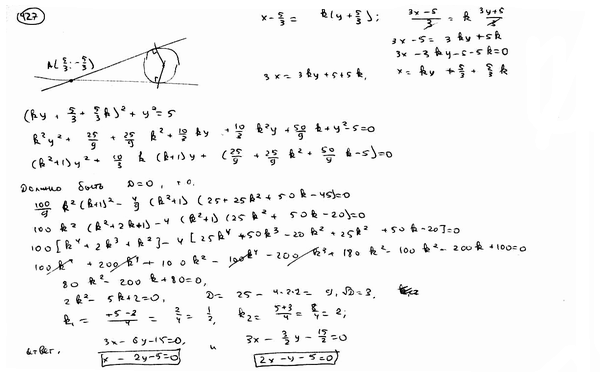 927
A(5/3; -5/3)
x - 5/3 = k(y + 5/3); (3x-5)/3 = k (3y+5)/3
3x - 5 = 3ky + 5k
3x - 3ky - 5 - 5k = 0
3x = 3ky + 5 + 5k, x = ky + 5/3 + 5/3 k
(ky + 5/3 + 5/3 k)² + y² = 5
k²y² + 25/9 + 25/9 k² + 10/3 ky + 10/3 k²y + 50/9 k + y² - 5 = 0
(k²+1)y² + 10/3 k (k+1)y + (25/9 + 25/9 k² + 50/9 k - 5) = 0
Должно быть D=0, т.е.
100/9 k²(k+1)² - 4/9 (k²+1)(25 + 25k² + 50k - 45) = 0
100k²(k²+2k+1) - 4(k²+1)(25k² + 50k - 20) = 0
100[k⁴ + 2k³ + k²] - 4[25k⁴ + 50k³ - 20k² + 25k² + 50k - 20] = 0
100k⁴ + 200k³ + 100k² - 100k⁴ - 200k³ + 80k² - 100k² - 200k + 80 = 0
80k² - 200k + 80 = 0,
2k² - 5k + 2 = 0, D = 25 - 4·2·2 = 9, √D = 3,
k₁ = (+5-3)/4 = 2/4 = 1/2, k₂ = (5+3)/4 = 8/4 = 2;
Ответ. 3x - 6y - 15 = 0 и 3x - 3/2 y - 15/2 = 0
x - 2y - 5 = 0 2x - y - 5 = 0